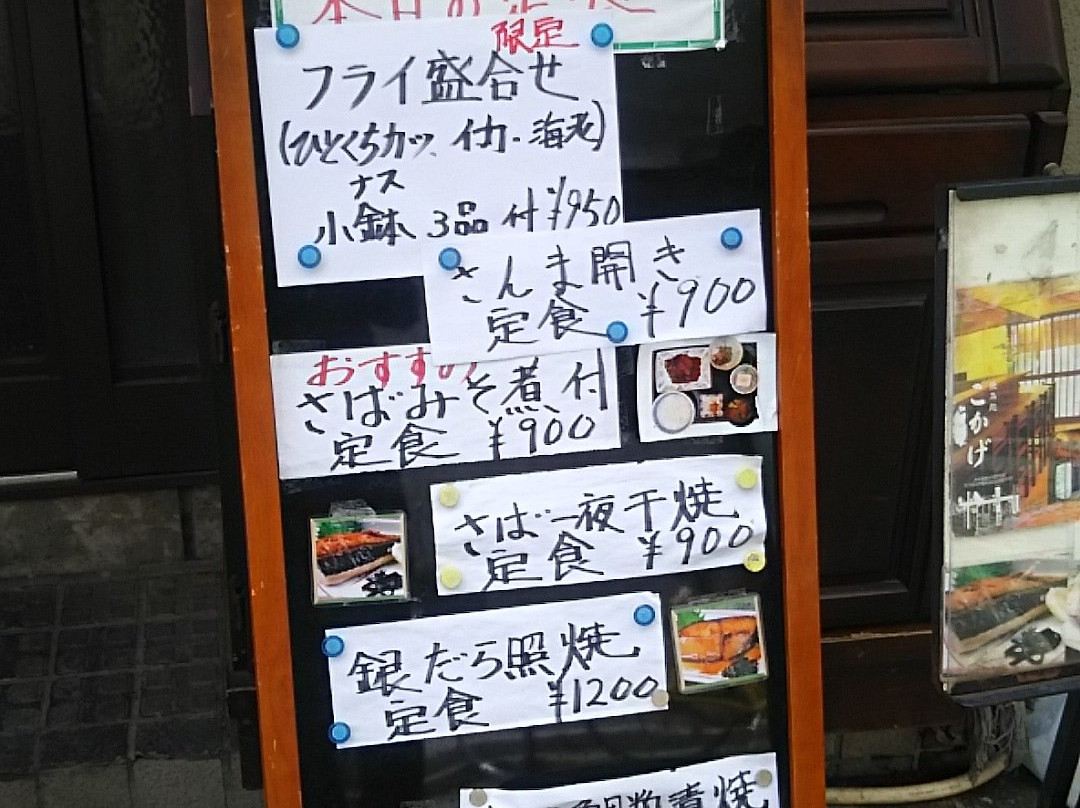 限定
フライ盛合せ
(ひとくちカツ、イカ・海老)
ナス
小鉢 3品 付 ¥950
さんま開き
定食 ¥900
おすすめ
さばみそ煮付
定食 ¥900
さば一夜干焼
定食 ¥900
銀だら照焼
定食 ¥1200
粕漬焼
こかげ